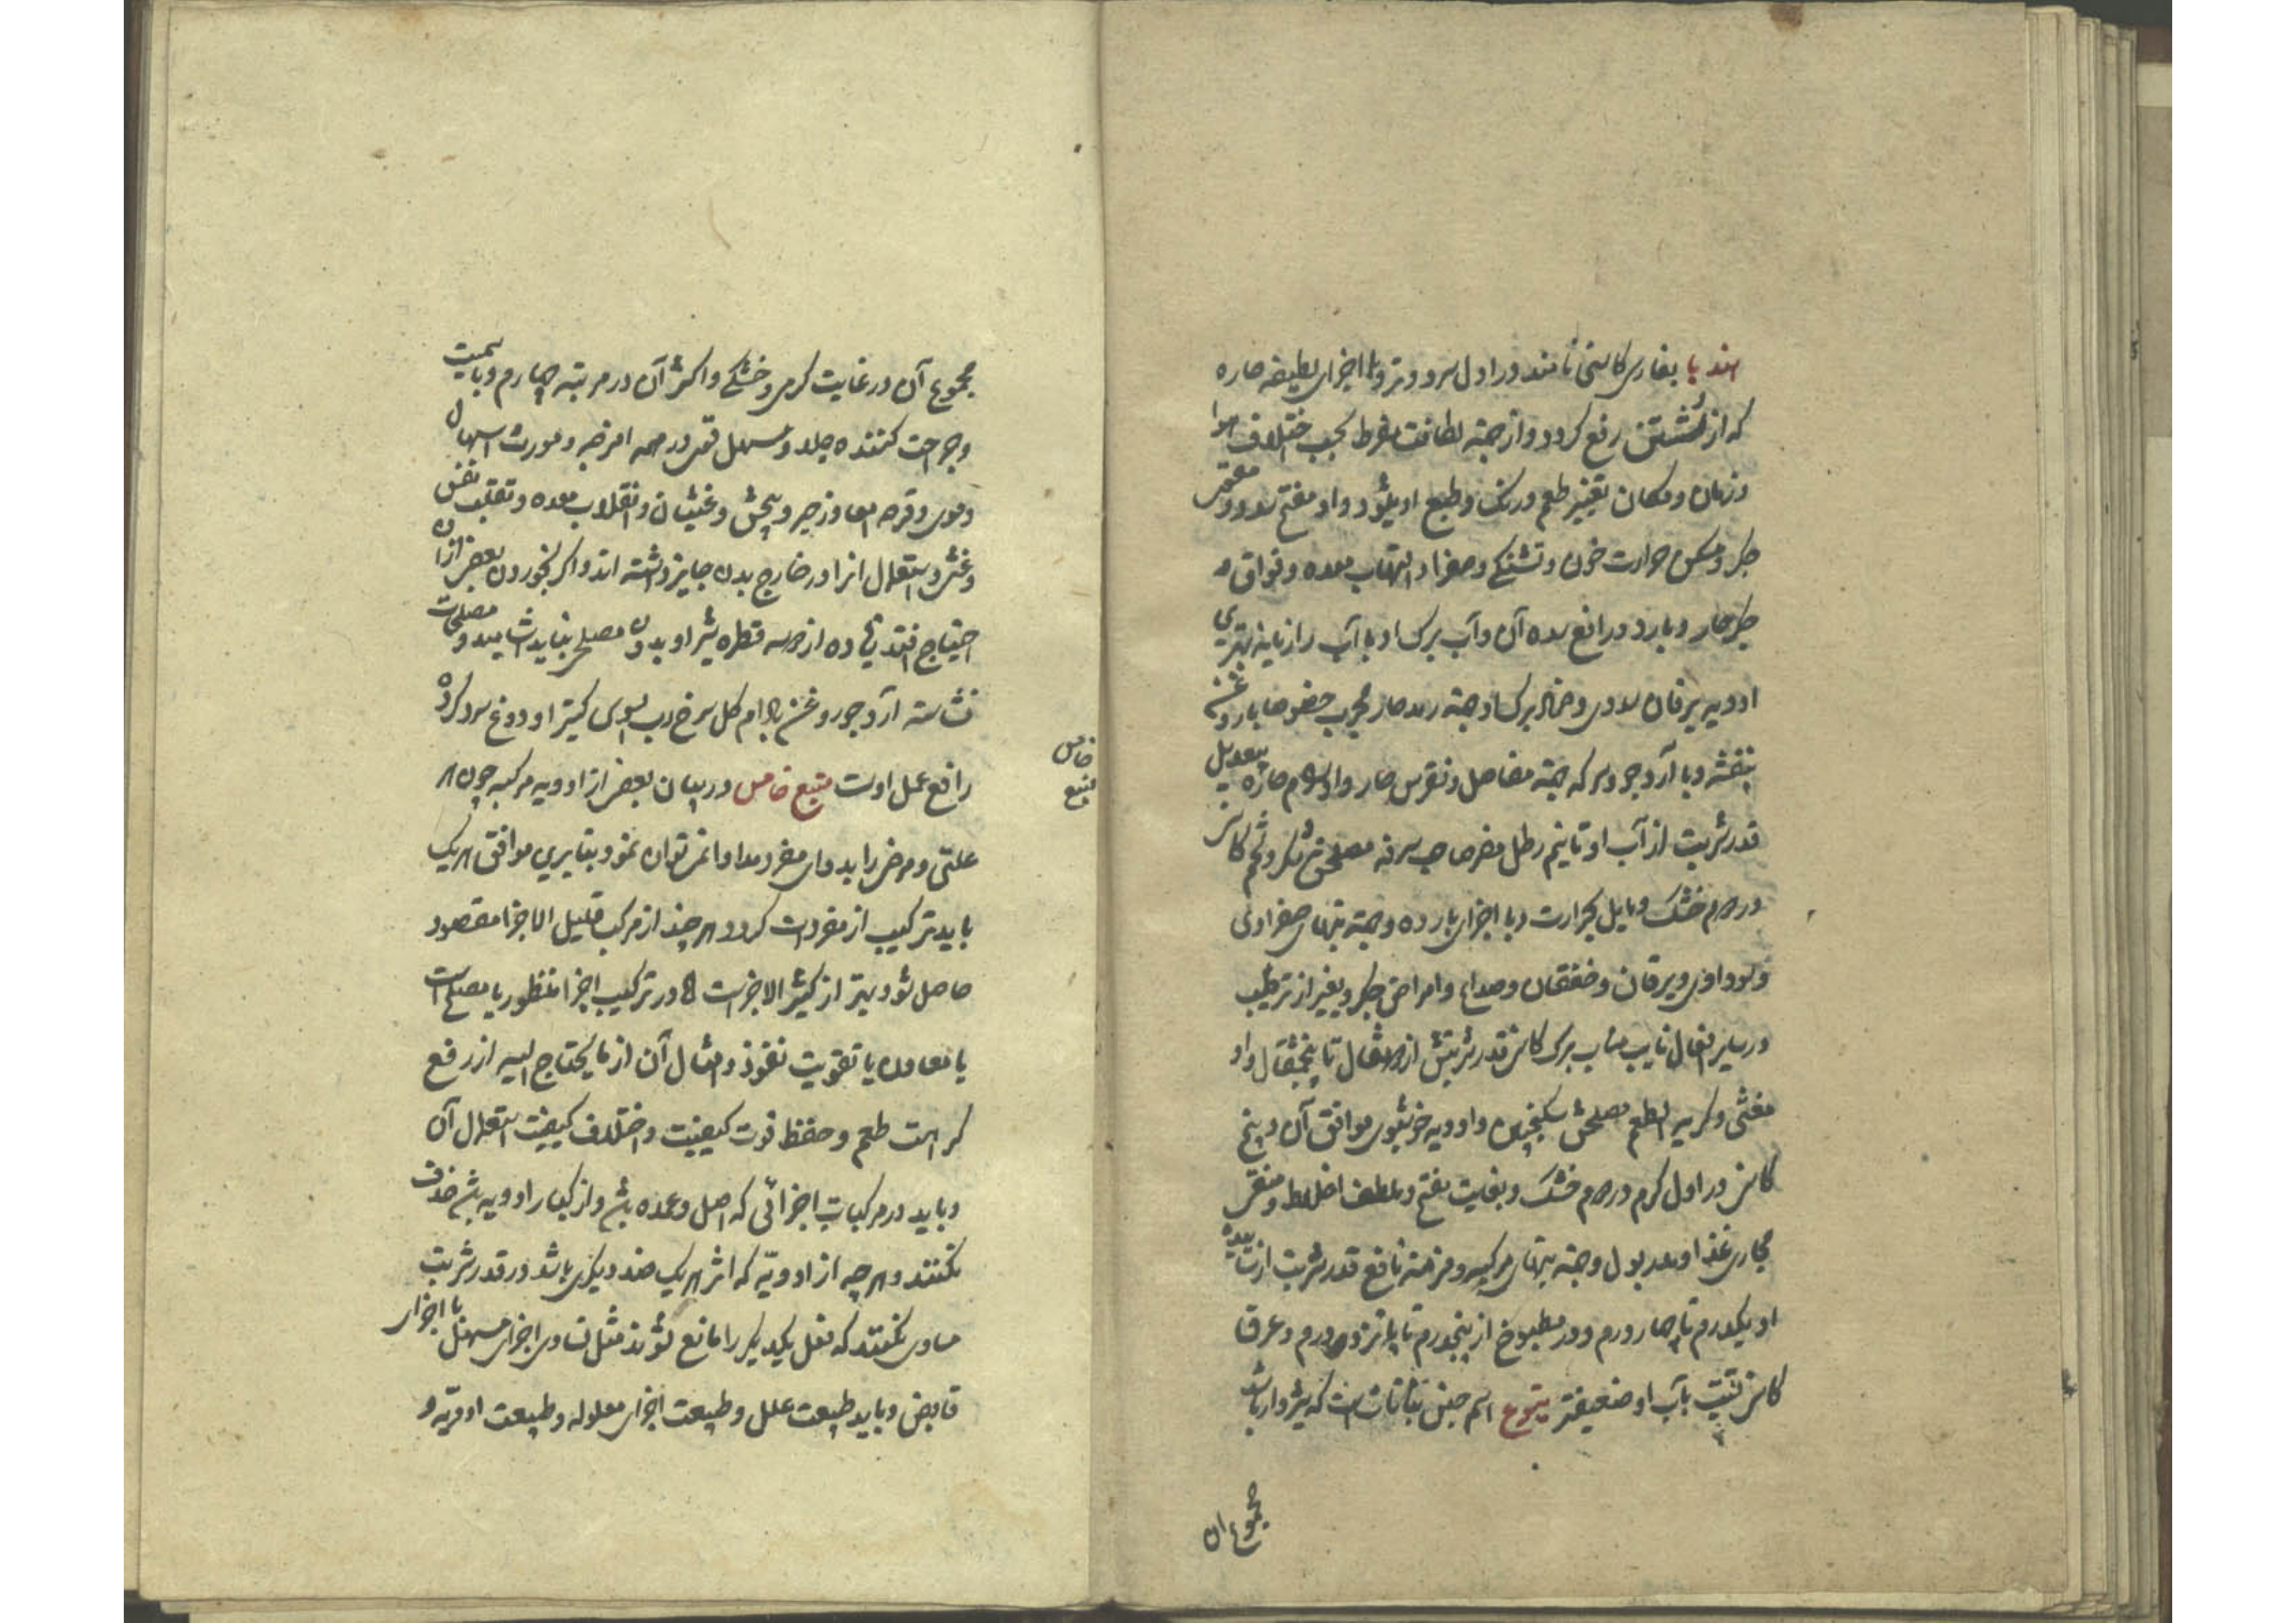 هندبا بفارسی کاسنی نامند در اول سرد و تر و با اجزای لطیفه حاره
که از شستن رفع گردد و از جهته لطافت مفرط بحسب اختلاف هوا
و زمان و مکان تغییر طعم و رنگ و طبع او میشود و او مفتح سدد و مقوی
جگر و مسکن حرارت خون و تشنگی و صفرا و التهاب معده و فواق و
جگر حار و بارد و رافع سده آن و آب برگ او با آب رازیانه بهترین
ادویه یرقان سددی و ضماد برگ او جهته رمد حار مجرب خصوصا با روغن
بنفشه و با آرد جو و سرکه جهته مفاصل و نقرس حار و اورام حاره بیعدیل
قدر شربت از آب او تا نیم رطل مضر صاحب سرفه مصلحش شکر و تخم کاسنی
در دوم خشک و مایل بحرارت و با اجزای بارده و جهته تبهای صفراوی
و سوداوی و یرقان و خفقان و صداع و امراض جگر و بغیر از ترطیب
در سایر افعال نایب مناب برگ کاسنی قدر شربتش از دو مثقال تا پنجمثقال و او
مغثی و کریه الطعم مصلحش سکنجبین و ادویه خوشبوی موافق آن و بیخ
کاسنی در اول گرم و در دوم خشک و بغایت مفتح و ملطف اخلاط و منقی
مجاری غذا و مدر بول و جهته تبهای مرکبه و مزمنه نافع قدر شربت از سائیده
او یکدرم تا چهار درم و در مطبوخ از پنجدرم تا پانزده درم و عرق
کاسنی نسبت بآب او ضعیفتر یتوع اسم جنس نباتات است که شیردار باشد
مجموع آن
مجموع آن در غایت گرمی و خشکی و اکثر آن در مرتبه چهارم و با سمیت
و جراحت کننده جلد و مسهل قوی در همه امزجه و مورث اسهال
دموی و قرحه امعا و زحیر و پیچش و غثیان و انقلاب معده و تقلب نفس
و غشی و استعمال انرا در خارج بدن جایز داشته اند و اگر بخوردن بعضی ازان
احتیاج افتد زیاده از دو سه قطره شیر او بدون مصلح نباید آشامید و مصلحات
نشاسته آرد جو روغن بادام گل سرخ رب السوس کتیرا و دوغ سرد کرده
رافع عمل اوست منبع خامس در بیان بعضی از ادویه مرکبه چون هر
خامس
منبع
علتی و مرض را بدوای مفرد مداوا نمی توان نمود بنابرین موافق هر یک
باید ترکیب از مفردات کرد و هر چند از مرکب قلیل الاجزا مقصود
حاصل شود بهتر از کثیر الاجزاست و در ترکیب اجزا منظور یا مصلح است
یا معاون یا تقویت نفوذ و امثال آن از ما یحتاج الیه از رفع
کراهت طعم و حفظ قوت کیفیت و اختلاف کیفیت استعمال آن
و باید در مرکبات اجزائی که اصل و عمده باشد و از کبار ادویه باشد حذف
نکنند و هر چه از ادویّه که اثر هر یک ضد دیگری باشد در قدر شربت
مساوی نکنند که فعل یکدیگر را مانع شوند مثل تساوی اجزای مسهل با اجزای
قابض و باید طبیعت علل و طبیعت اجزای معلوله و طبیعت ادویّه و